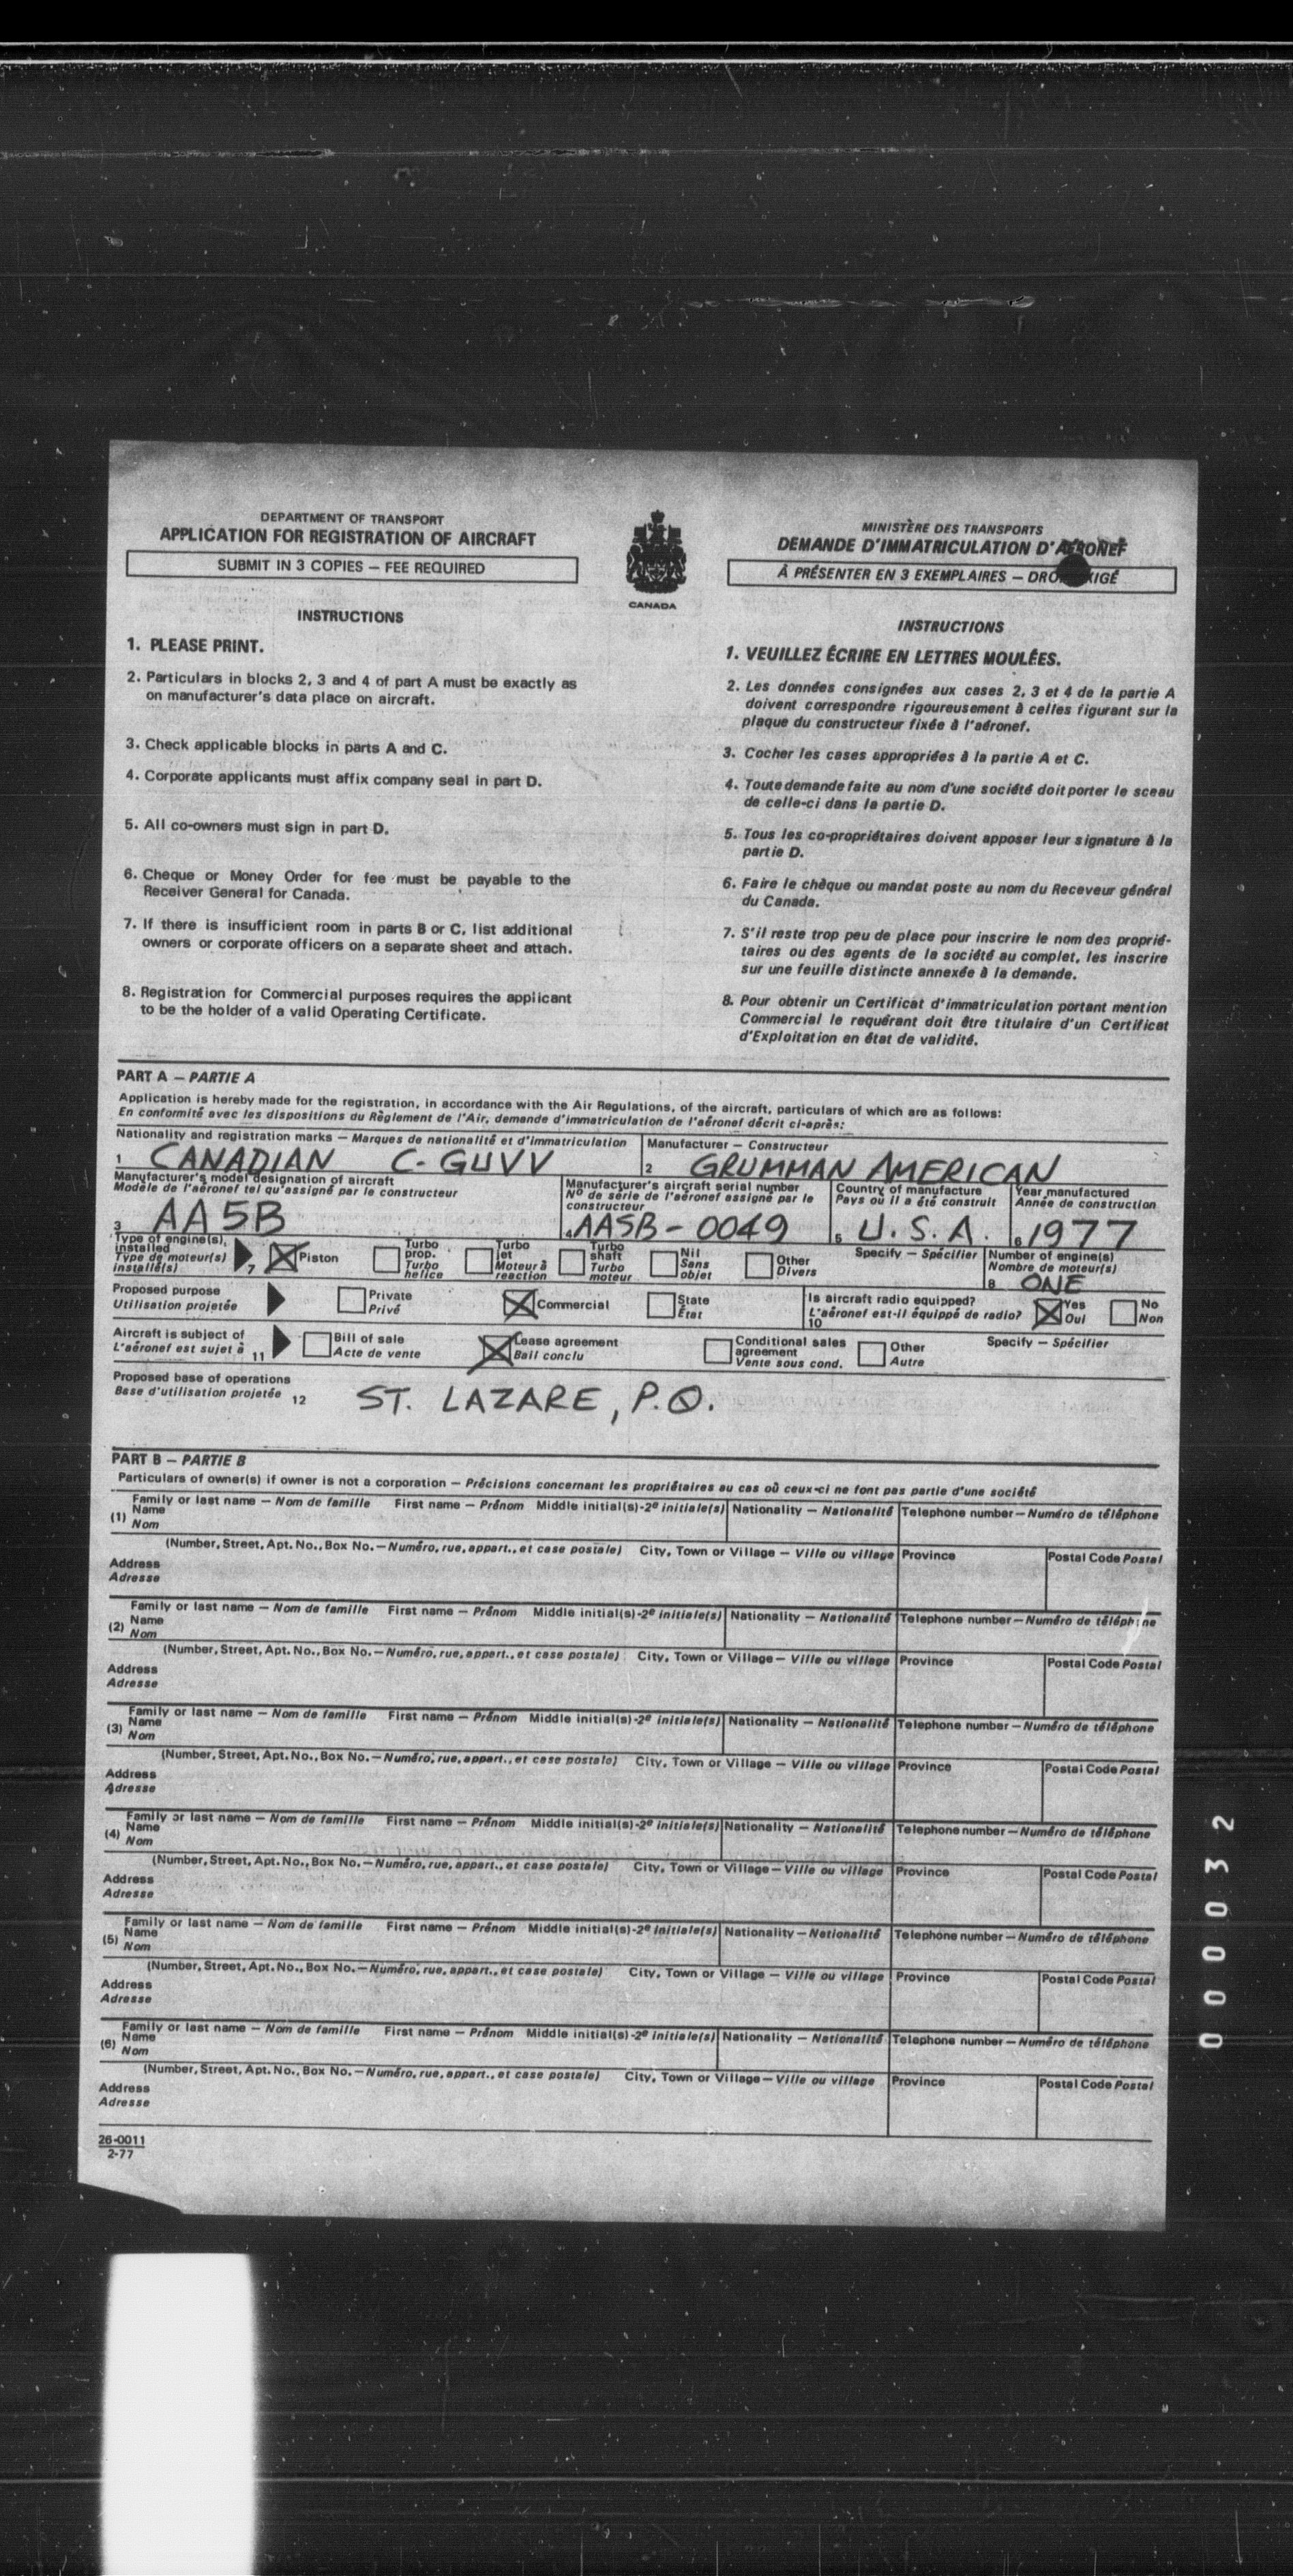 DEPARTMENT OF TRANSPORT
APPLICATION FOR REGISTRATION OF AIRCRAFT
SUBMIT IN 3 COPIES — FEE REQUIRED
CANADA
MINISTÈRE DES TRANSPORTS
DEMANDE D'IMMATRICULATION D'AÉRONEF
À PRÉSENTER EN 3 EXEMPLAIRES —
INSTRUCTIONS
1. PLEASE PRINT.
2. Particulars in blocks 2, 3 and 4 of part A must be exactly as
on manufacturer's data place on aircraft.
3. Check applicable blocks in parts A and C.
4. Corporate applicants must affix company seal in part D.
5. All co-owners must sign in part D.
6. Cheque or Money Order for fee must be payable to the
Receiver General for Canada.
7. If there is insufficient room in parts B or C, list additional
owners or corporate officers on a separate sheet and attach.
8. Registration for Commercial purposes requires the applicant
to be the holder of a valid Operating Certificate.
INSTRUCTIONS
1. VEUILLEZ ÉCRIRE EN LETTRES MOULÉES.
2. Les données consignées aux cases 2, 3 et 4 de la partie A
doivent correspondre rigoureusement à celles figurant sur la
plaque du constructeur fixée à l'aéronef.
3. Cocher les cases appropriées à la partie A et C.
4. Toute demande faite au nom d'une société doit porter le sceau
de celle-ci dans la partie D.
5. Tous les co-propriétaires doivent apposer leur signature à la
partie D.
6. Faire le chèque ou mandat poste au nom du Receveur général
du Canada.
7. S'il reste trop peu de place pour inscrire le nom des proprié-
taires ou des agents de la société au complet, les inscrire
sur une feuille distincte annexée à la demande.
8. Pour obtenir un Certificat d'immatriculation portant mention
Commercial le requérant doit être titulaire d'un Certificat
d'Exploitation en état de validité.
PART A — PARTIE A
Application is hereby made for the registration, in accordance with the Air Regulations, of the aircraft, particulars of which are as follows:
En conformité avec les dispositions du Règlement de l'Air, demande d'immatriculation de l'aéronef décrit ci-après:
Nationality and registration marks — Marques de nationalité et d'immatriculation
1 CANADIAN C-GUVV
Manufacturer — Constructeur
2 GRUMMAN AMERICAN
Manufacturer's model designation of aircraft
Modèle de l'aéronef tel qu'assigné par le constructeur
3 AA5B
Manufacturer's aircraft serial number
Nº de série de l'aéronef assigné par le
constructeur
4 AA5B-0049
Country of manufacture
Pays où il a été construit
5 U.S.A.
Year manufactured
Année de construction
6 1977
Type of engine(s),
installed
Type de moteur(s)
installé(s) 7
Piston
Turbo
prop.
Turbo
helice
Turbo
jet
Moteur à
reaction
Turbo
shaft
Turbo
moteur
Nil
Sans
objet
Other
Divers
Specify — Spécifier
Number of engine(s)
Nombre de moteur(s)
8 ONE
Proposed purpose
Utilisation projetée
Private
Privé
Commercial
State
État
Is aircraft radio equipped?
L'aéronef est-il équippé de radio?
10
Yes
Oui
No
Non
Aircraft is subject of
L'aéronef est sujet à 11
Bill of sale
Acte de vente
Lease agreement
Bail conclu
Conditional sales
agreement
Vente sous cond.
Other
Autre
Specify — Spécifier
Proposed base of operations
Base d'utilisation projetée 12
ST. LAZARE, P.Q.
PART B — PARTIE B
Particulars of owner(s) if owner is not a corporation — Précisions concernant les propriétaires au cas où ceux-ci ne font pas partie d'une société
Family or last name — Nom de famille First name — Prénom Middle initial(s)-2e initiale(s) Nationality — Nationalité Telephone number — Numéro de téléphone
(1) Name
Nom
(Number, Street, Apt. No., Box No. — Numéro, rue, appart., et case postale) City, Town or Village — Ville ou village Province Postal Code Postal
Address
Adresse
Family or last name — Nom de famille First name — Prénom Middle initial(s)-2e initiale(s) Nationality — Nationalité Telephone number — Numéro de téléphone
(2) Name
Nom
(Number, Street, Apt. No., Box No. — Numéro, rue, appart., et case postale) City, Town or Village — Ville ou village Province Postal Code Postal
Address
Adresse
Family or last name — Nom de famille First name — Prénom Middle initial(s)-2e initiale(s) Nationality — Nationalité Telephone number — Numéro de téléphone
(3) Name
Nom
(Number, Street, Apt. No., Box No. — Numéro, rue, appart., et case postale) City, Town or Village — Ville ou village Province Postal Code Postal
Address
Adresse
Family or last name — Nom de famille First name — Prénom Middle initial(s)-2e initiale(s) Nationality — Nationalité Telephone number — Numéro de téléphone
(4) Name
Nom
(Number, Street, Apt. No., Box No. — Numéro, rue, appart., et case postale) City, Town or Village — Ville ou village Province Postal Code Postal
Address
Adresse
Family or last name — Nom de famille First name — Prénom Middle initial(s)-2e initiale(s) Nationality — Nationalité Telephone number — Numéro de téléphone
(5) Name
Nom
(Number, Street, Apt. No., Box No. — Numéro, rue, appart., et case postale) City, Town or Village — Ville ou village Province Postal Code Postal
Address
Adresse
Family or last name — Nom de famille First name — Prénom Middle initial(s)-2e initiale(s) Nationality — Nationalité Telephone number — Numéro de téléphone
(6) Name
Nom
(Number, Street, Apt. No., Box No. — Numéro, rue, appart., et case postale) City, Town or Village — Ville ou village Province Postal Code Postal
Address
Adresse
26-0011
2-77
000032